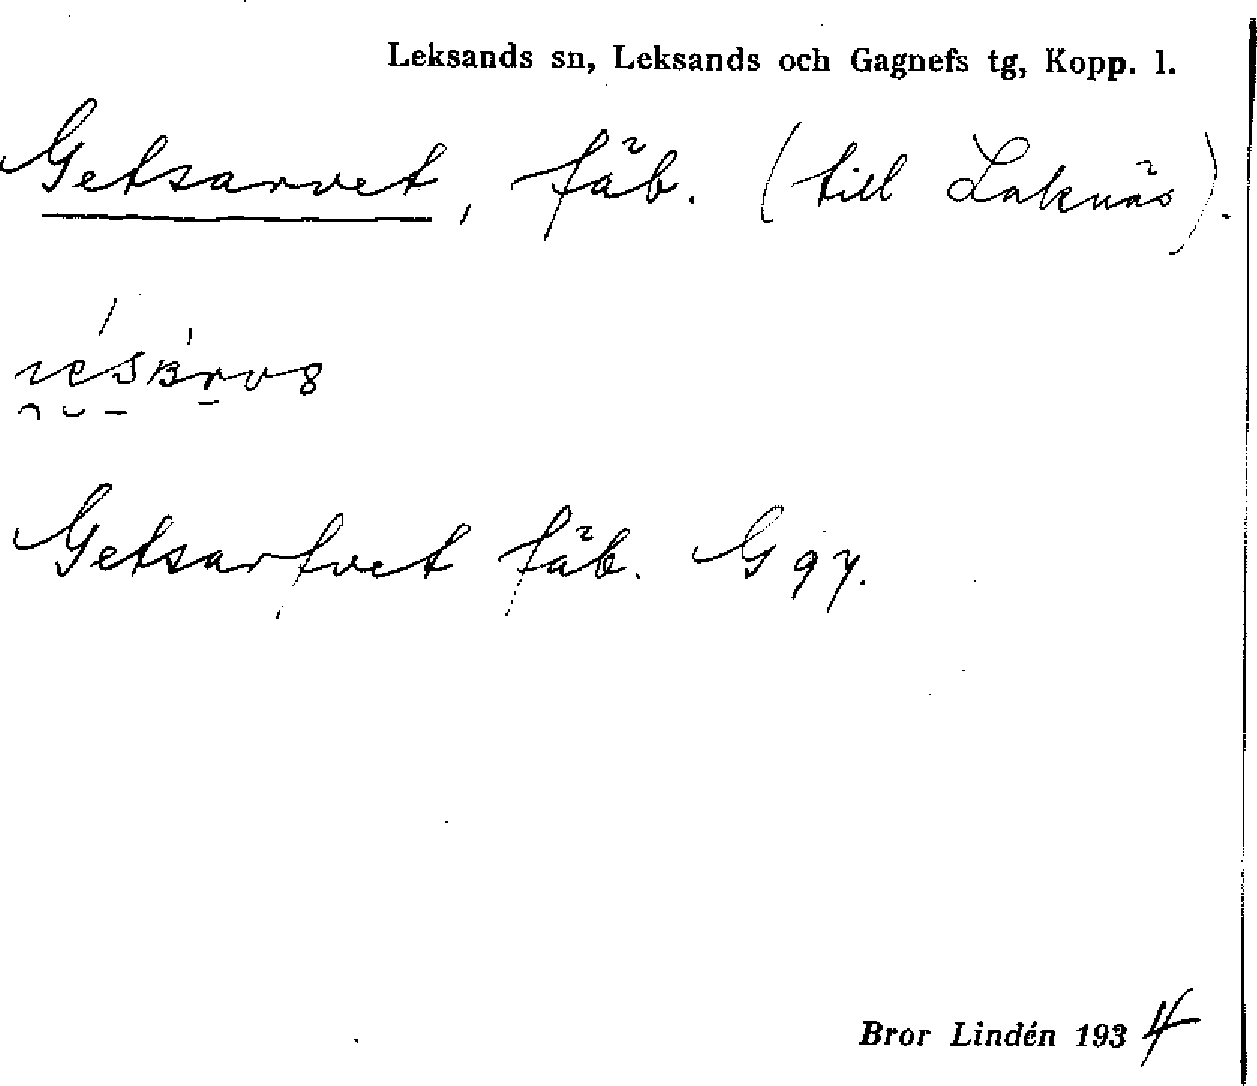 Leksands sn, Leksands och Gagnefs tg, Kopp. l.
Getsarvet, fäb. (till Laknäs).
Getsarfvet fäb. G 97.
Bror Lindén 1934